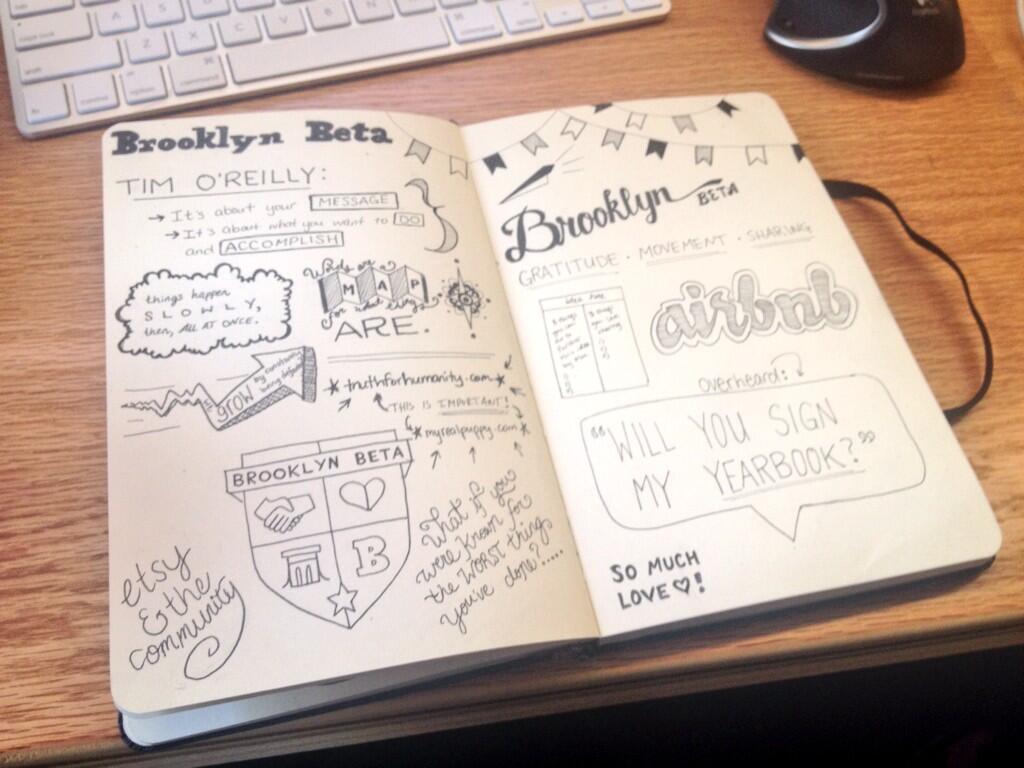 Brooklyn Beta
TIM O'REILLY:
→ It's about your MESSAGE
→ It's about what you want to DO
and ACCOMPLISH
things happen
SLOWLY,
then, ALL AT ONCE.
Words are a
MAP
ARE.
grow
* truthforhumanity.com *
THIS IS IMPORTANT!
* myrealpuppy.com *
BROOKLYN BETA
B
etsy
& the
community
What if you
were known for
the WORST thing
you've done?.....
Brooklyn BETA
GRATITUDE · MOVEMENT · SHARING
airbnb
overheard:
"WILL YOU SIGN
MY YEARBOOK?"
SO MUCH
LOVE ♡!
caps lock
A
S
D
Z
X
C
V
B
N
M
fn
control
option
command
command
option